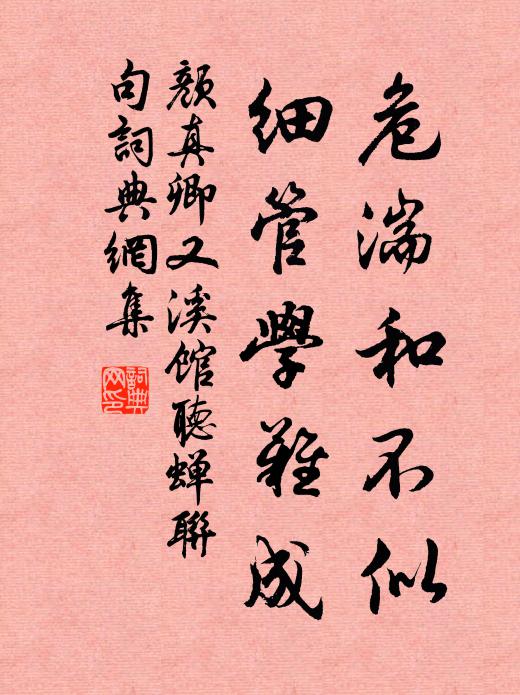 危湍和不似
細管學難成
顏真卿又溪館聽蟬聯
句詞典網集
詞典網印